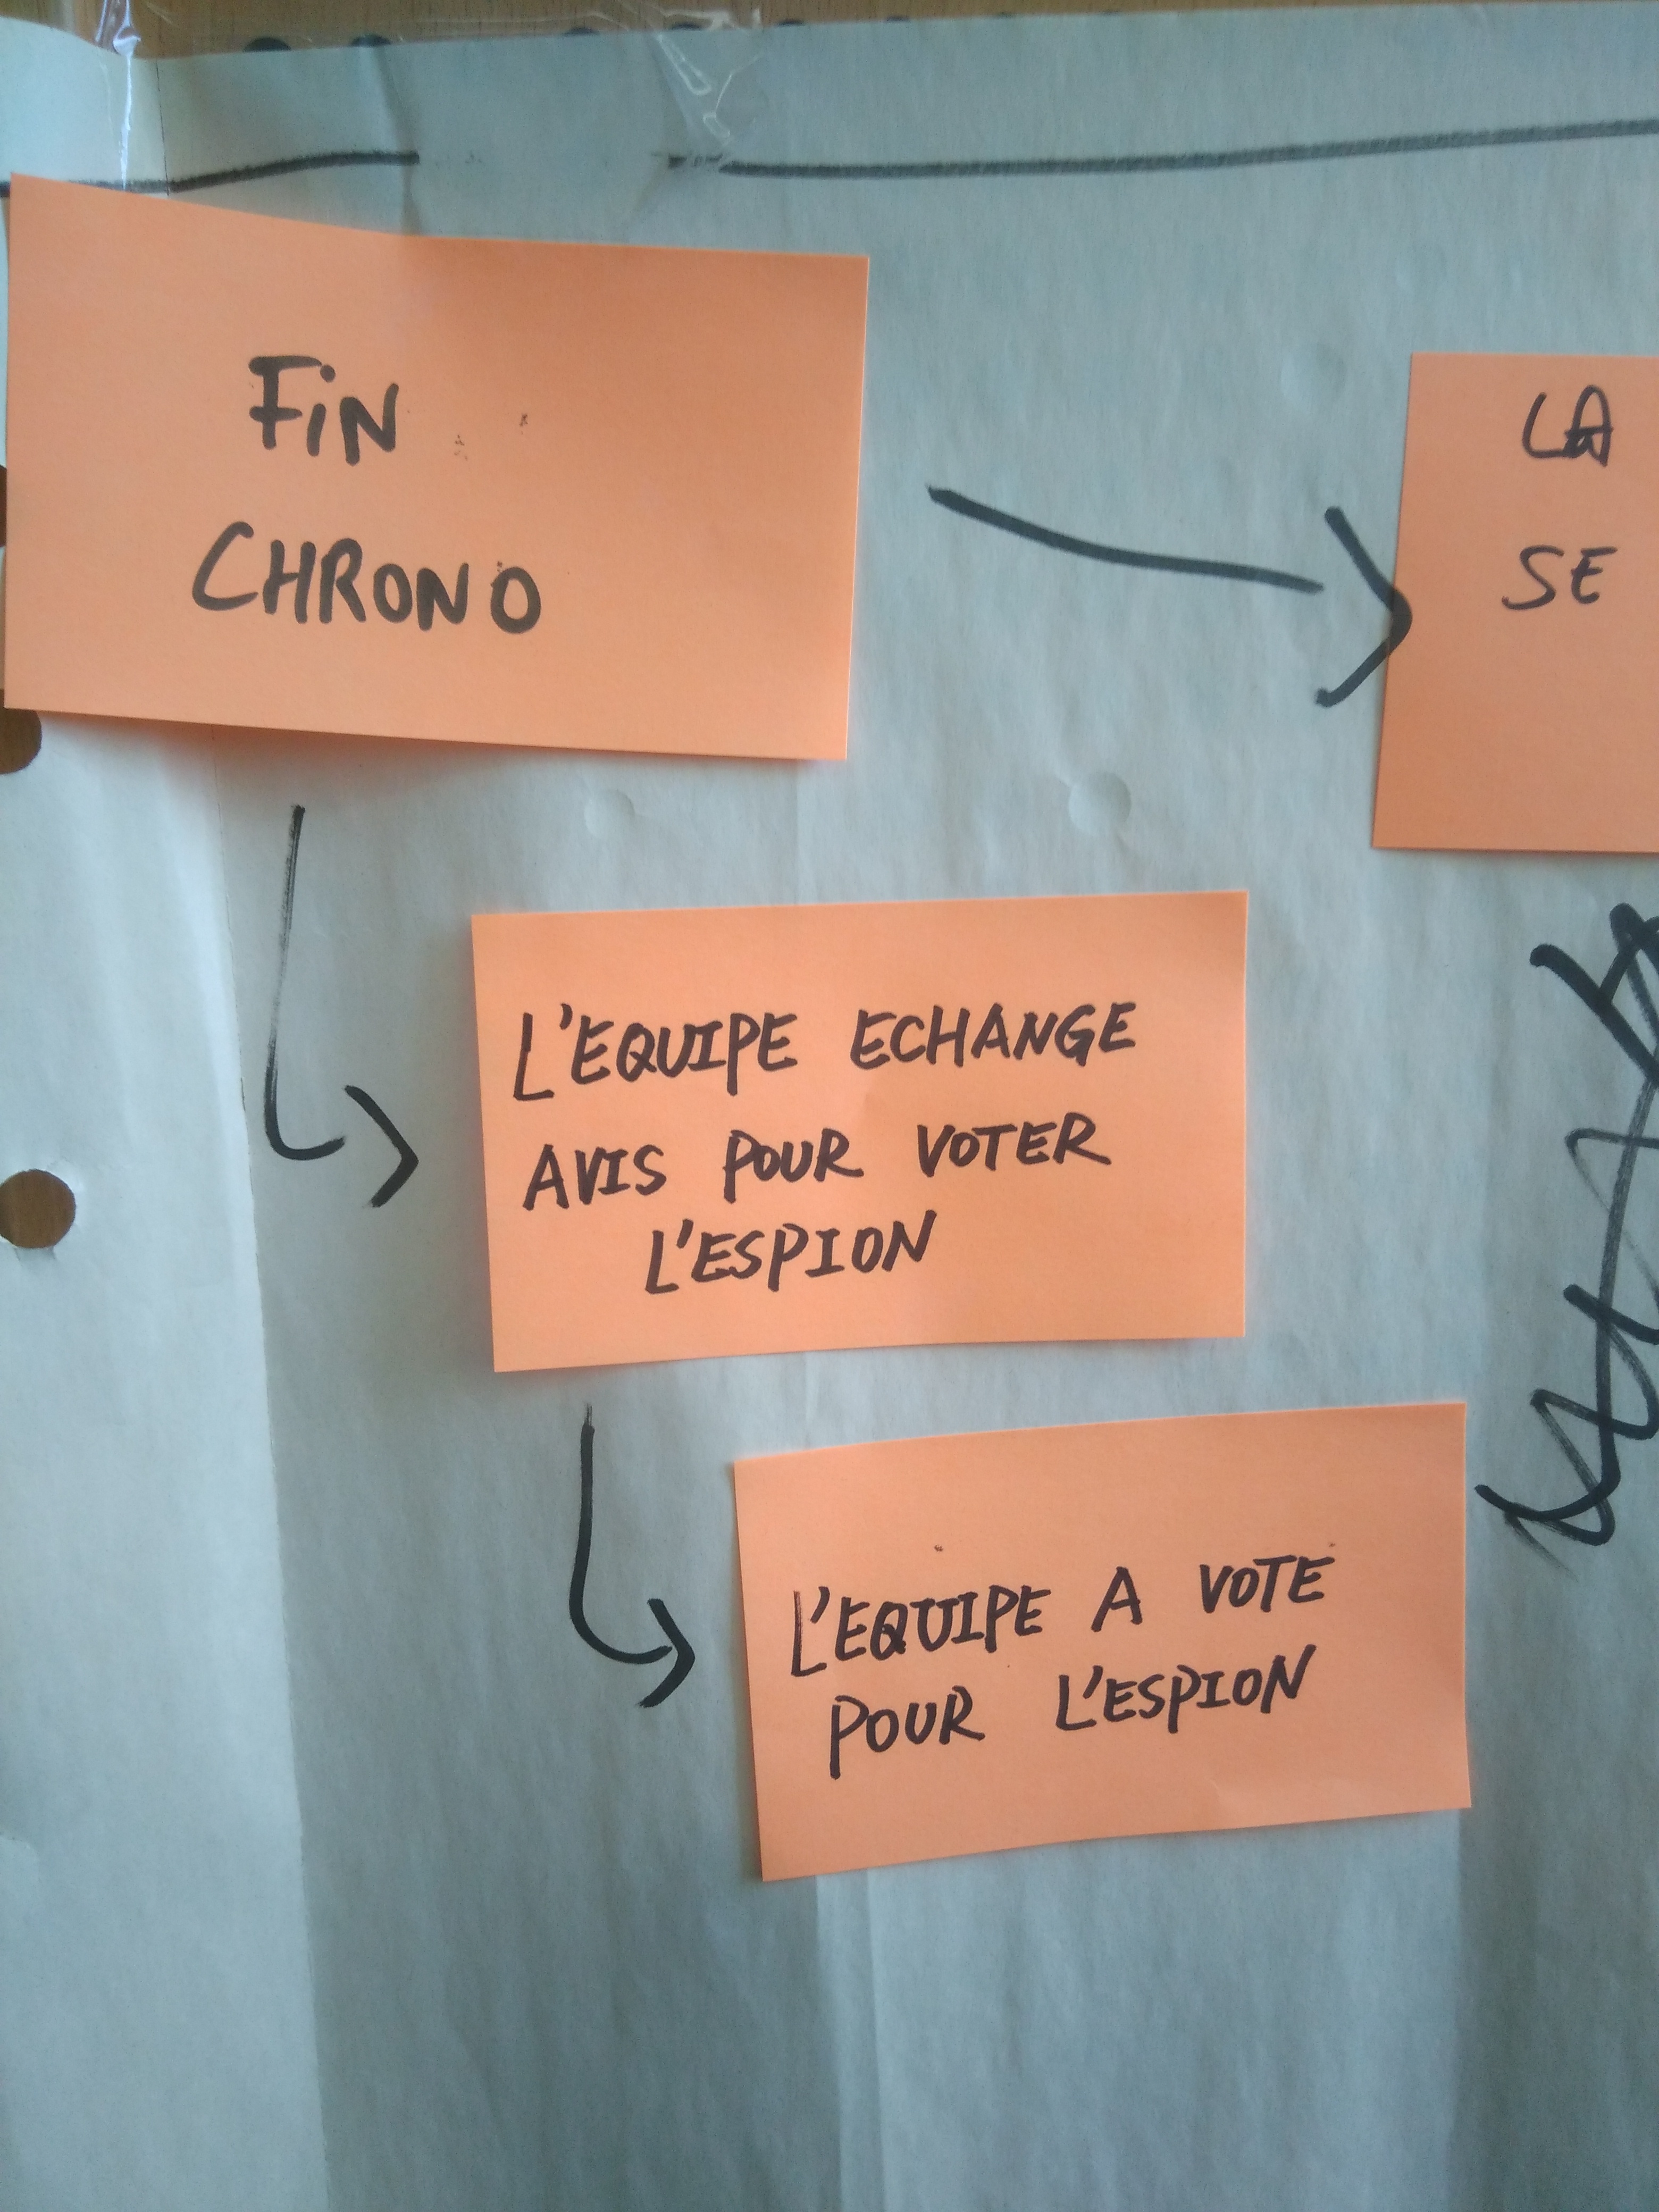 FIN
CHRONO
LA
SE
L'EQUIPE ECHANGE
AVIS POUR VOTER
L'ESPION
L'EQUIPE A VOTE
POUR L'ESPION